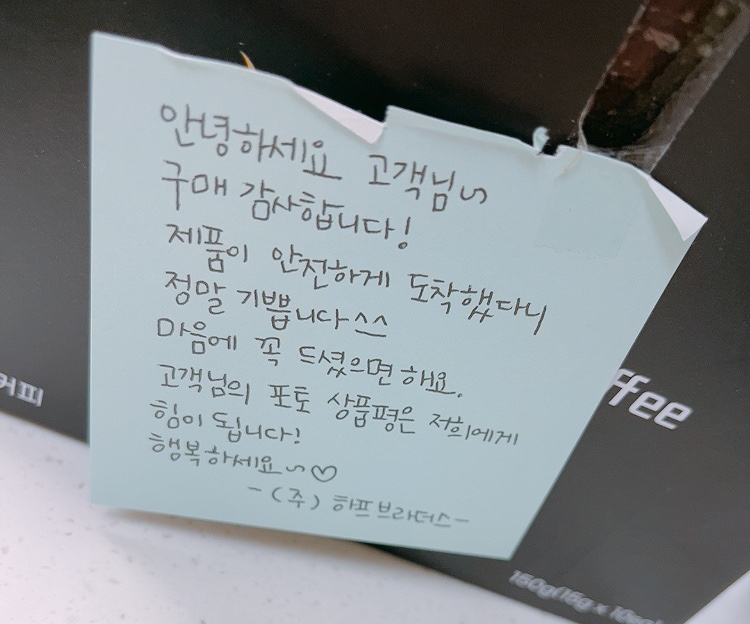 안녕하세요 고객님~
구매 감사합니다!
제품이 안전하게 도착했다니
정말 기쁩니다^^
마음에 꼭 드셨으면 해요.
고객님의 포토 상품평은 저희에게
힘이 됩니다!
행복하세요~♡
-(주) 하프브라더스-
커피
ffee